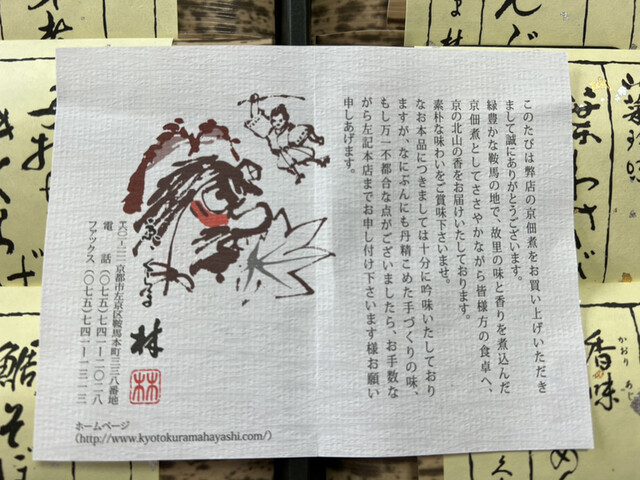 このたびは弊店の京佃煮をお買い上げいただき
まして誠にありがとうございます。
緑豊かな鞍馬の地で、故里の味と香りを煮込んだ
京佃煮としてささやかながら皆様方の食卓へ、
京の北山の香をお届けいたしております。
素朴な味わいをご賞味下さいませ。
なお本品につきましては十分に吟味いたしており
ますが、なにぶんにも丹精こめた手づくりの味、
もし万一不都合な点がございましたら、お手数な
がら左記本店までお申し付け下さいます様お願い
申しあげます。
林
林
京都市左京区鞍馬本町三三八番地
電話(〇七五)七四一ー一〇二八
ファックス(〇七五)七四一ー一三一三
ホームページ
(http://www.kyotokuramahayashi.com/)
香味
かおり